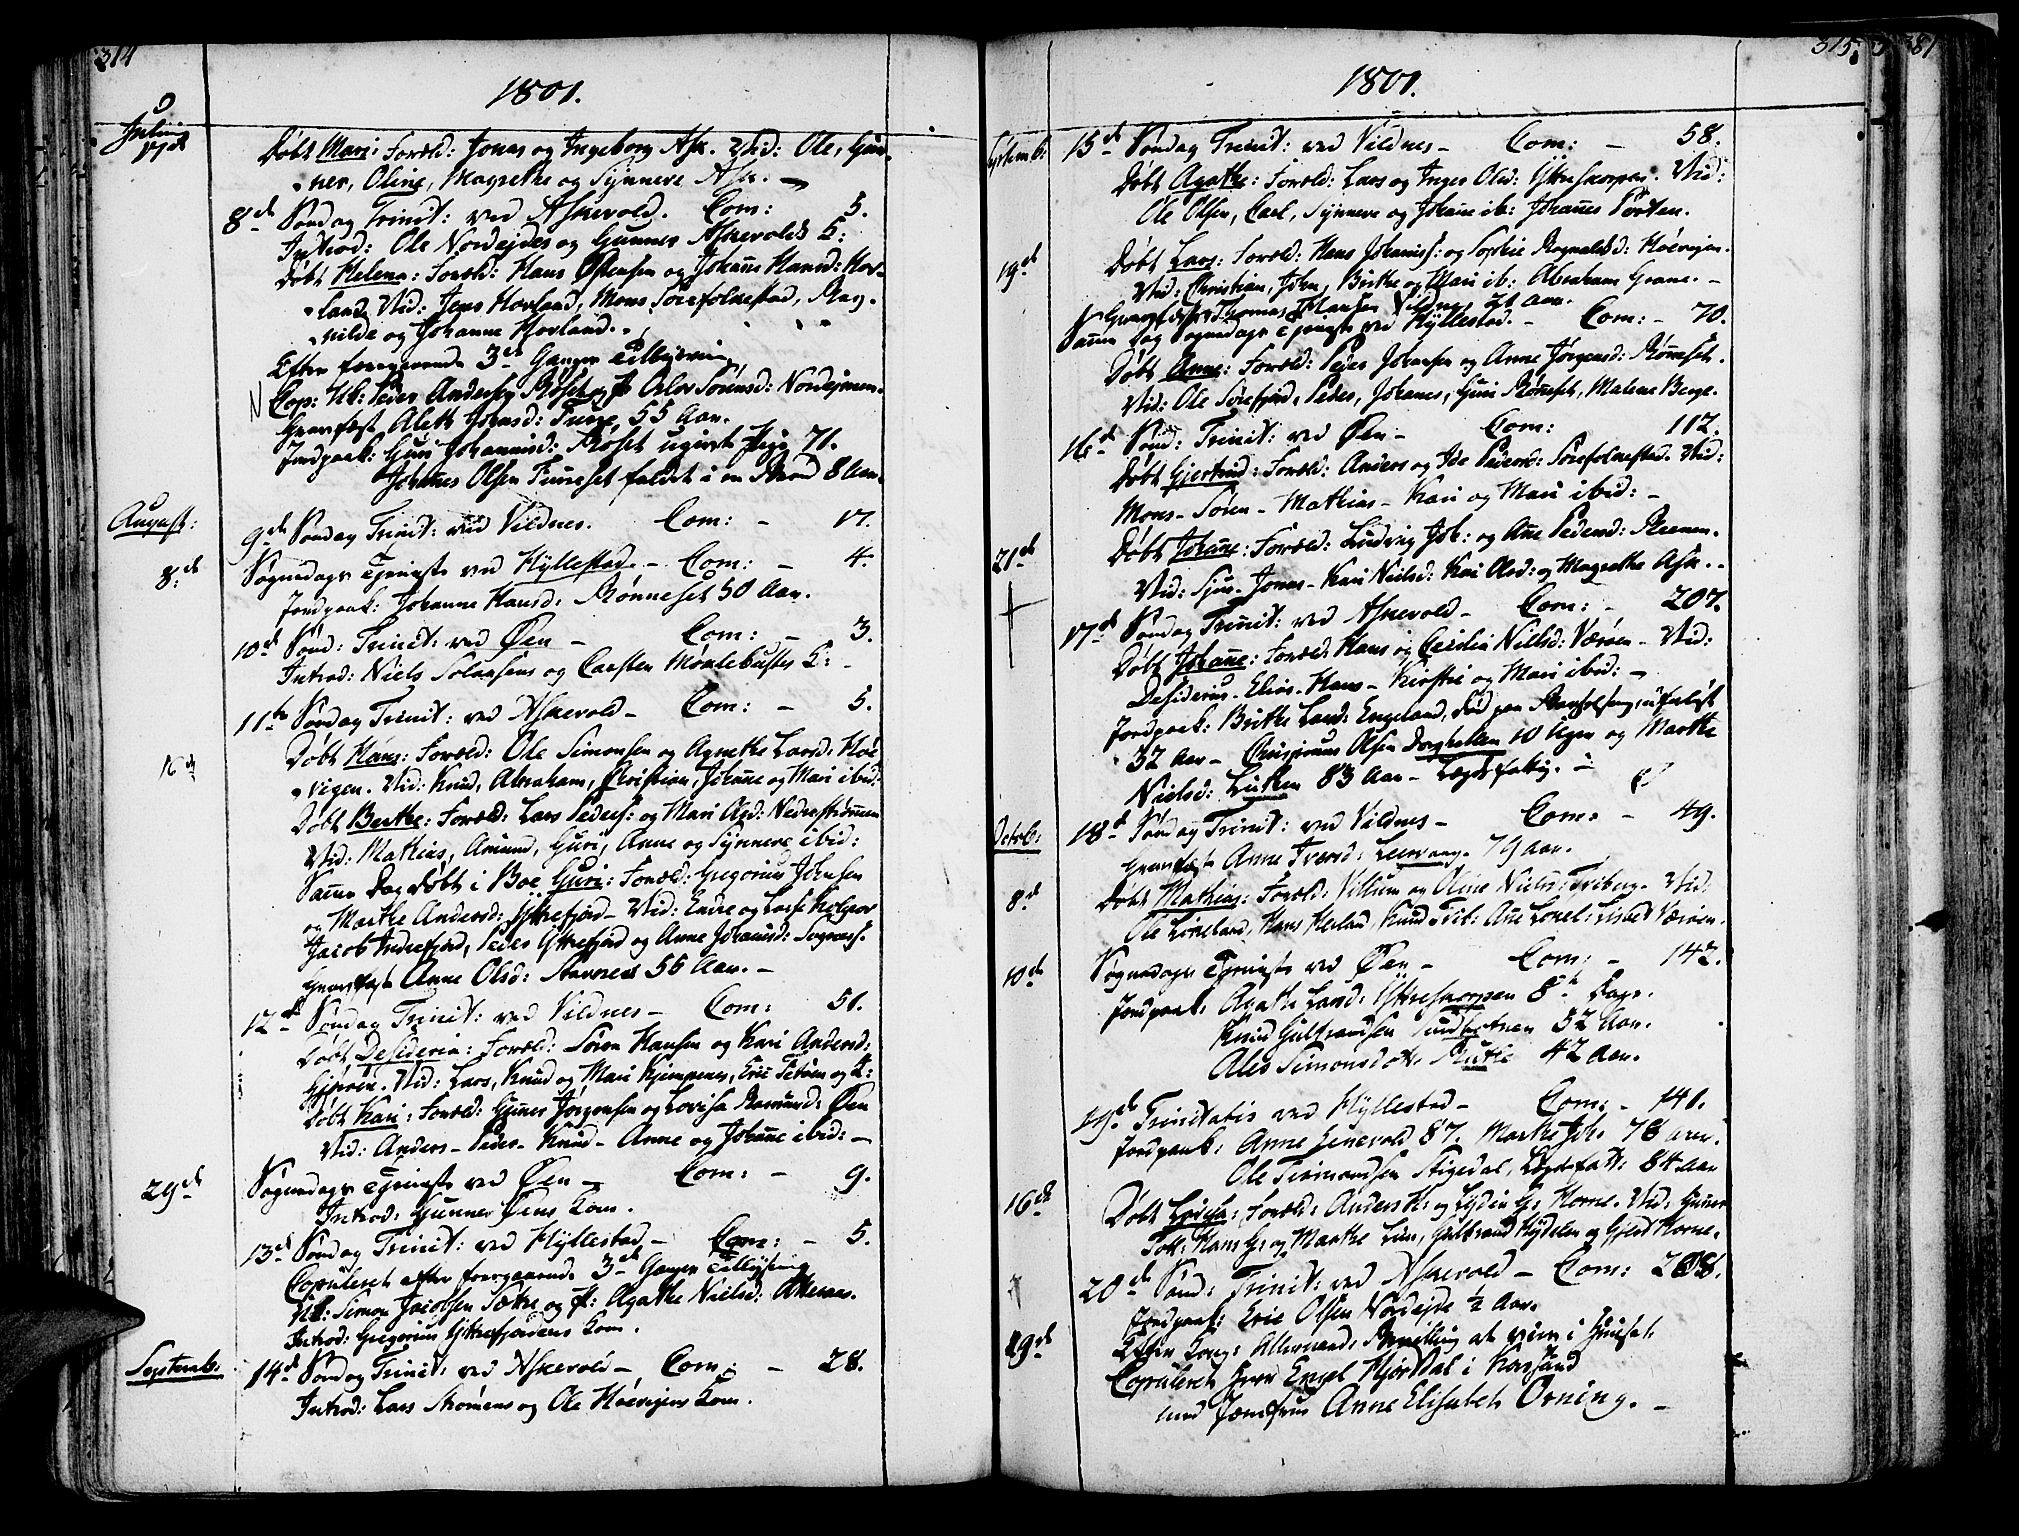 314
1801.
Julius
Døbt Mari: Foræld: Jonas og Ingeborg Ask. Vid: Ole, Gun-
ner, Oline, Magrethe og Synneve Ask.
8de Søndag Trinit: ved Askevold. Com: 5.
Introd: Ole Nordejdes og Gunner Askevolds K:
Døbt Helena: Foræld: Hans Østensen og Johanne Hansd: Hov-
land, Vid: Jens Hovland, Mons Sørefolnestad, Rag-
nilde og Johanne Hovland.
Efter foregaaende 3de Ganger Tillysning
Cop: Uk: Peder Andersen Røset og P: Oslov Sørensd: Nordejmen.
Gravfæst Aleth Johnsd: 55 Aar.
Jordpaak: Guri Johannisd: Røset ugivt Pige 71.
Johannes Olsen faldet i en 8 Aar.
August:
9de Søndag Trinit: ved Vildnes. Com: - 17.
8de Søgnedags Tjeniste ved Hyllestad. - Com: - 4.
Jordpaak: Johanne Hansd: Rønneset 50 Aar.
10de Sønd: Trinit: ved Øen - Com: - 3.
Introd: Niels Solaasens og Carsten Myklebustes K: -
11te Søndag Trinit: ved Askevold - Com: - 5.
16de
Døbt Hans: Foræld: Ole Simonsen og Agnethe Larsd: Høe
vigen. Vid: Knud, Abraham, Christian, Johanne og Mari ibid:
Døbt Berthe: Foræld: Lars Peders: og Mari Asd: Nederstrømmen
Vid: Mathias, Amund, Guri, Anne og Synneve ibid:
Samme Dag Døbt i Boe Guri: Foræld: Gregorius Johnsen
og Marthe Andersd: Ytrefjord - Vid: Endre og Lasse
Jacob Indrefjord, Peder Ytrefjord og Anne Johannisd:
Gravfæst Anne Olsd: Stavenes 55 Aar. -
12de Søndag Trinit: ved Vildnes - Com: 51.
Døbt Desideria: Foræld: Søren Hansen og Kari Andersd:
Gjøren. Vid: Lars, Knud og Mari Kjempenes, Eric og K:
Døbt Kari: Foræld: Gunner Jørgensen og Lovisa Rasmusd: Øen
Vid: Anders - Peder - Knud - Anne og Johanne ibid: -
29de Søgnedags Tjeniste ved Øen - Com: - 9.
Introd: Gunner Øens Kone.
13de Søndag Trinit: ved Hyllestad - Com: - 5.
Copuleret efter foregaaende 3de Ganger Tillysning
Uk: Simon Jacobsen Sætre og P: Agathe Nielsd: Akeraas.
Introd: Gregorius Ytrefjordens Kone.
Septemb:
14de Søndag Trinit: ved Askevold - Com: - 28.
Introd: Lars Strømens og Ole Høevigens Kone.
315
381
1801.
Septemb:
15de Søndag Trinit: ved Vildnes - Com: - 58.
Døbt Agathe: Foræld: Lars og Inger Olsd: Ytreskorpen. Vid:
Ole Olsen, Carl, Synneve og Johanne ib: Johannes Porten.
19de
Døbt Lars: Foræld: Hans Johaness: og Sophie Rognaldsd: Høevigen.
Vid: Christian, John, Birthe og Mari ib: Abraham Grane. -
Gravfæst Thomas Hansen Vildnes Aar.
Samme Dag Søgnedags Tjeniste ved Hyllestad. - Com: - 70.
Døbt Anne: Foræld: Peder Johansen og Anne Jørgensd: Rønneset.
Vid: Ole Sørefjord, Peder, Johanes, Guri Rønneset, Malene Berge.
16de Sønd: Trinit: ved Øen - Com: 112.
Døbt Gjertrud: Foræld: Anders og Ide Pedersd: Sørefolnestad. Vid:
Mons - Søren - Mathias - Kari og Mari ibid: -
21de
Døbt Johanne: Foræld: Ludvig Joh: og Ane Pedersd:
Vid: Sjur - Jonas - Kari Nielsd: Kari Olsd: og Magrethe Ask. -
17de Søndag Trinit: ved Askevold - Com: - 207.
Døbt Johanne: Foræld: Hans og Cecilia Nielsd: Værøen - Vid:
Desiderius - Elias - Hans - Kirstie og Mari ibid: -
Jordpaak: Brithe Larsd: Engeland, død paa
32 Aar - Chrispinus Olsen 10 Uger og Marthe
Nielsd: 83 Aar - Lægdsfattig. -
Octob:
18de Søndag Trinit: ved Vildnes - Com: - 49.
Gravfæst Anne Iversd: Leervaag. 79 Aar.
8de
Døbt Mathias: Foræld: Villum og Oline Nielsd: Triberg. Vid:
Ole Løkeland, Hans Herland, Knud Trib: Ane Lovel: Lisbet Værøen.
10de Søgnedags Tjeniste ved Øen - Com: - 142.
Jordpaak: Agathe Larsd: Ytreskorpen 8te Dage.
Knud Gulbrandsen 52 Aar.
Ales Simonsdot: 42 Aar.
19de Trinitatis ved Hyllestad - Com: - 141.
Jordpaak: Anne Genevold 87. Marthe Joh. 78 Aar.
Ole Stigedal, Lægdsfatt: 84 Aar
16de
Døbt Lovisa: Foræld: Anders K: og Lydia G: Horne. Vid: Gunner
Hans G: og Marthe Lien, Gulbrand Hydelen og Gjert Horne.
20de Sønd: Trinit: ved Askevold - Com: 208.
Jordpaak: Eric Olsen Nordejde ½ Aar.
29de
Efter Kong: Allernaad: Bevilling at vies i Huuset.
Copuleret Herr Engel Hjorddal i
med Jomfrue Anne Elisabet Orning. -